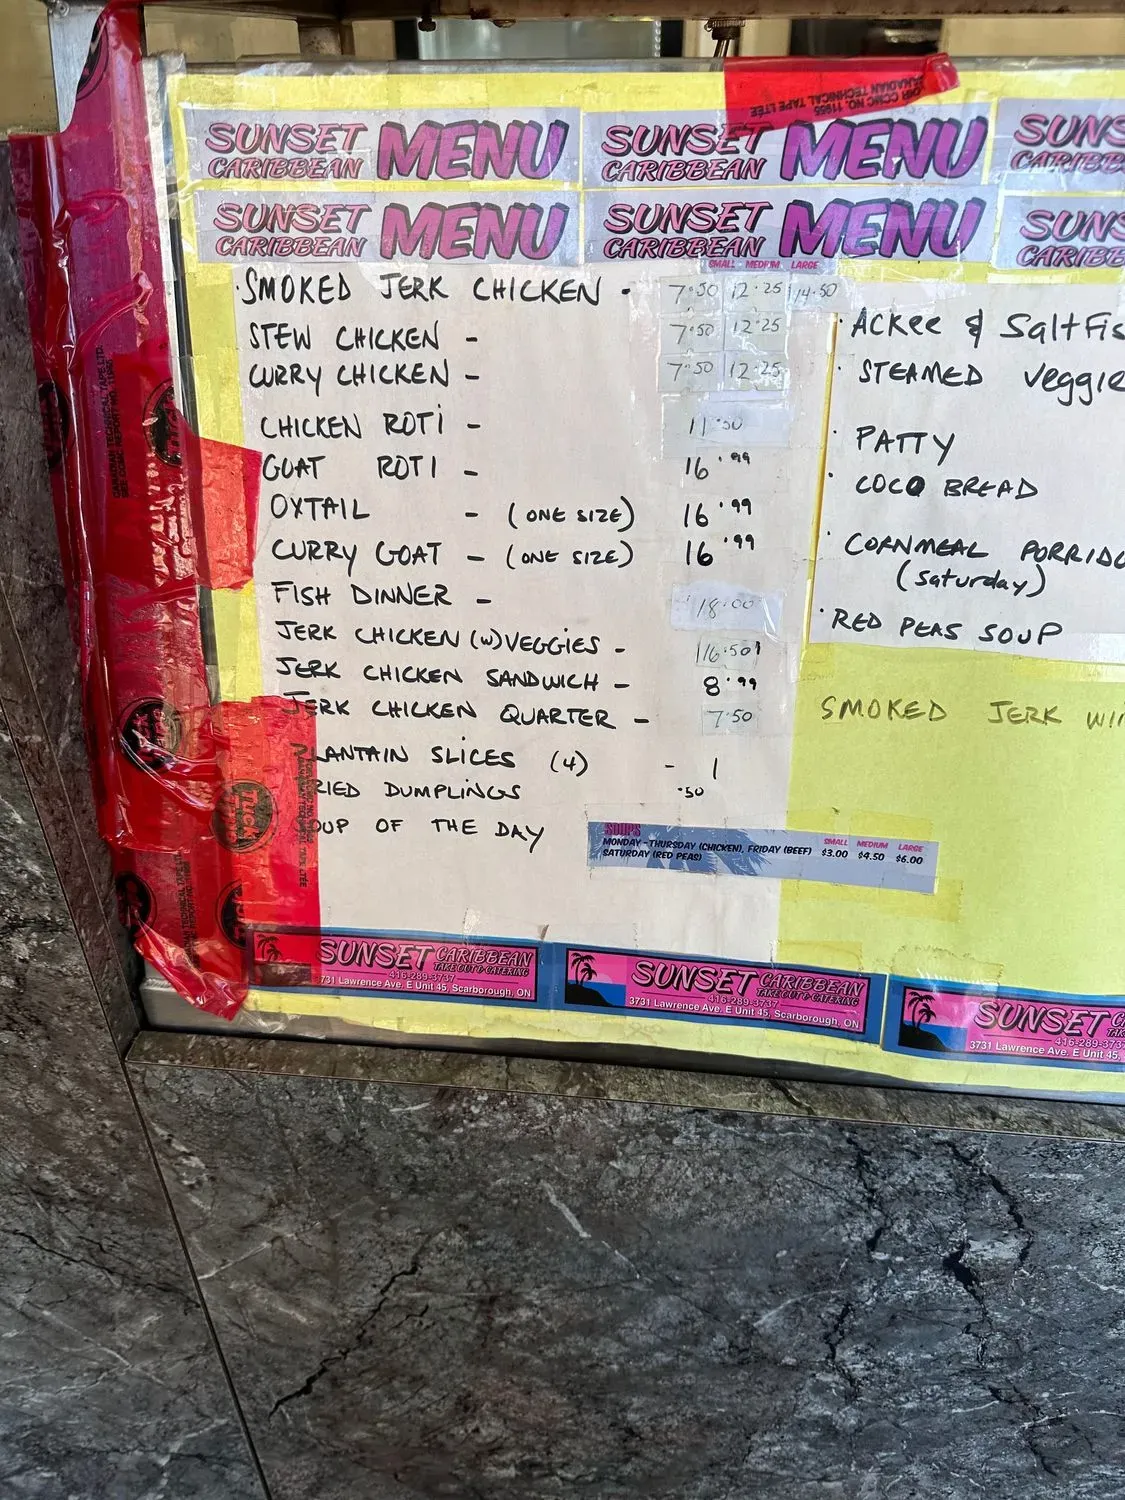 SUNSET CARIBBEAN MENU SUNSET CARIBBEAN MENU
SUNSET CARIBBEAN MENU SUNSET CARIBBEAN MENU
SMALL MEDIUM LARGE
SMOKED JERK CHICKEN - 7.50 12.25 14.50
STEW CHICKEN - 7.50 12.25
CURRY CHICKEN - 7.50 12.25
CHICKEN ROTI - 11.50
GOAT ROTI - 16.99
OXTAIL - (ONE SIZE) 16.99
CURRY GOAT - (ONE SIZE) 16.99
FISH DINNER - 18.00
JERK CHICKEN (W) VEGGIES - 16.50
JERK CHICKEN SANDWICH - 8.99
JERK CHICKEN QUARTER - 7.50
PLANTAIN SLICES (4) - 1
RIED DUMPLINGS .50
OUP OF THE DAY
SOUPS SMALL MEDIUM LARGE
MONDAY - THURSDAY (CHICKEN), FRIDAY (BEEF) $3.00 $4.50 $6.00
SATURDAY (RED PEAS)
ACKEE & SALTFIS
STEAMED VEGGIE
PATTY
COCO BREAD
CORNMEAL PORRIDG
(Saturday)
RED PEAS SOUP
SMOKED JERK WI
SUNSET CARIBBEAN
TAKE OUT & CATERING
416-289-3737
731 Lawrence Ave. E Unit 45, Scarborough, ON
SUNSET CARIBBEAN
TAKE OUT & CATERING
416-289-3737
3731 Lawrence Ave. E Unit 45, Scarborough, ON
SUNSET
416-289-373
3731 Lawrence Ave. E Unit 45,